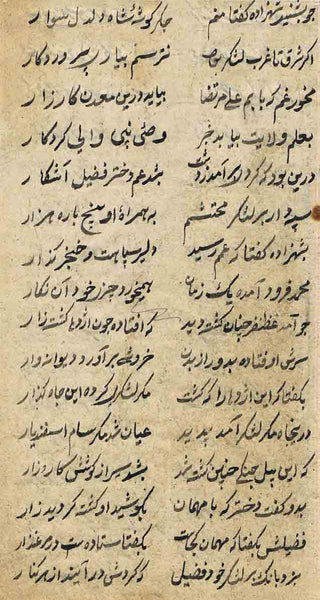 چو بشنید شهزاده گفتا منم جگر گوشهٔ شاه دلدل سوار
اگر شرق تا غرب لشکر بود نترسم بیاری پروردگار
مخور غم که بابم علی مرتضا بیاید درین معدن کارزار
بعلم ولایت بیابد خبر وصی نبی والی کردگار
درین بود که گردی برآمد ز دشت بشد عم دختر فضیل آشکار
سپه دار بر لشکر محتشم به همراه او پنج باره هزار
بشهزاده گفتا که عم رسید دلیر سپاهست و خنجر گذار
محمد فرود آمده یک زمان
جو آمد غضنفر چنان کشته دید که افتاده چون اژدها کشته زار
سرش اوفتاده بدور از بدن خروشی برآورد دیوانه وار
بگفتا که این اژدها را که کشت مگر لشکر کرده این جاه گذار
درینجاه مگر لشکر آمد پدید عیان شد مگر سام اسفندیار
که این پیل جنگی چنین کشته شد بشد سراز کوشش کارزار
بدو گفت دختر که با میهمان بکوشید او کشته گردید زار
فضیلش بگفتا که مهمان کجاست بگفتا ستاده ست در مرغذار
بزد بانگ بر لشکر خود فضیل که گردش درآیند از هر کنار